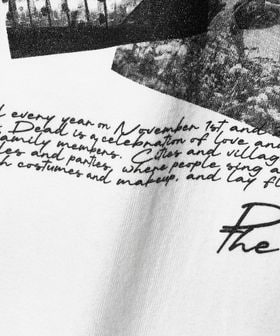 every year on November 1st, and
Dead is a celebration of love and
family members. Cities and villag
and parties, where people sing a
costumes and makeup, and lay fl
D
The